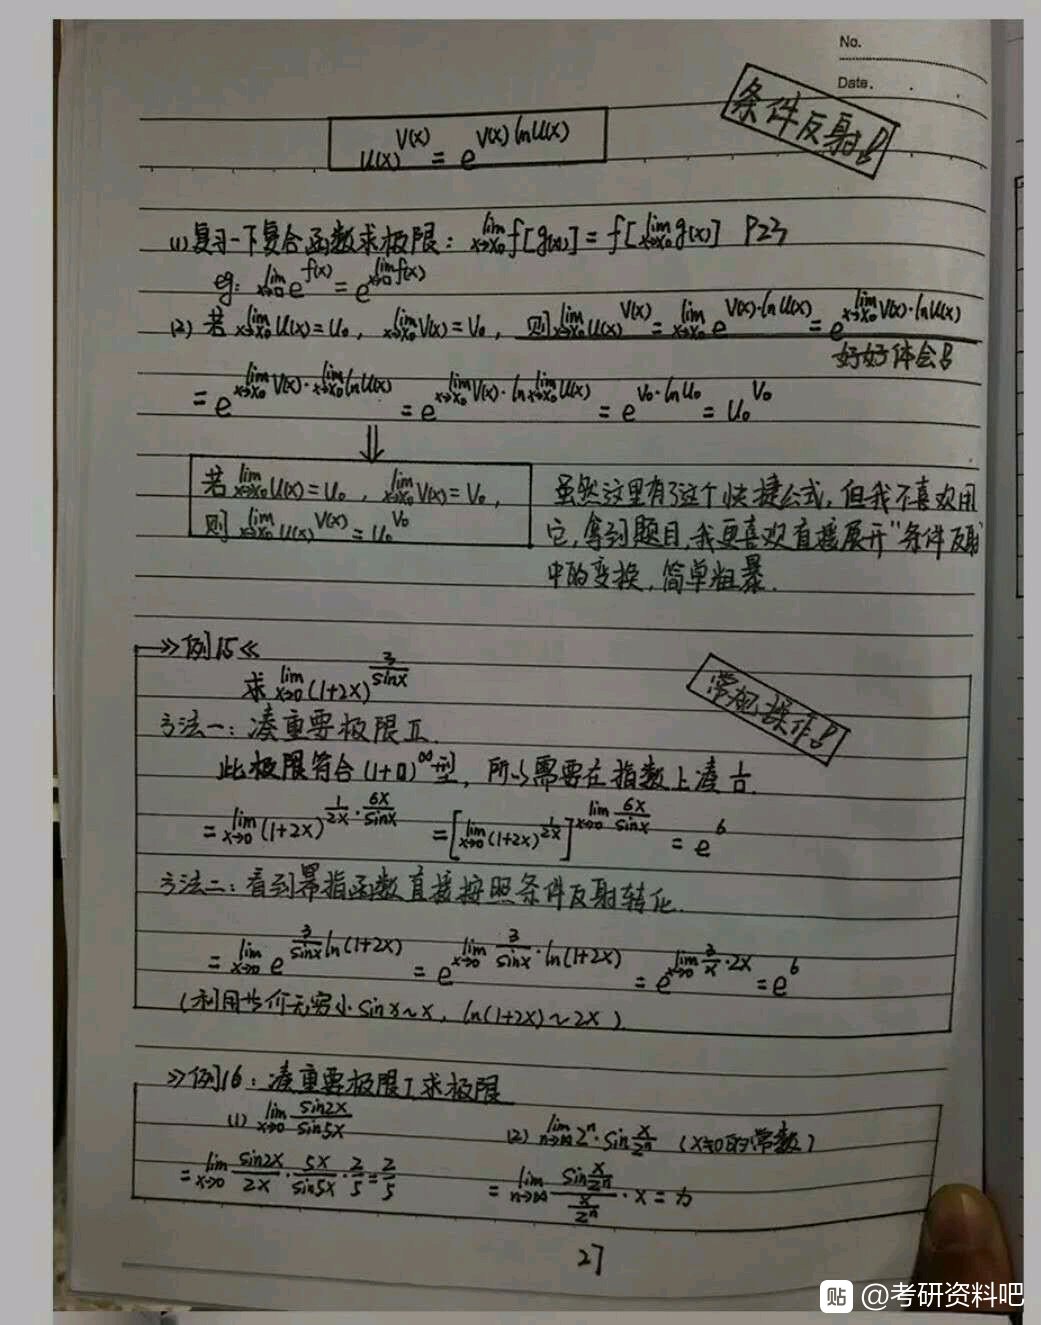 No.
Date.
条件反射!
u(x)^V(x) = e^V(x)lnu(x)
(1) 复习一下复合函数求极限: lim x→x₀ f[g(x)] = f[lim x→x₀ g(x)] P23
eg: lim x→0 e^f(x) = e^lim x→0 f(x)
(2) 若 lim x→x₀ u(x)=u₀, lim x→x₀ V(x)=V₀, 则 lim x→x₀ u(x)^V(x) = lim x→x₀ e^V(x)·lnu(x) = e^lim x→x₀ V(x)·lnu(x)
好好体会!
= e^lim x→x₀ V(x)·lim x→x₀ lnu(x) = e^lim x→x₀ V(x)·ln lim x→x₀ u(x) = e^V₀·lnu₀ = u₀^V₀
⇓
若 lim x→x₀ u(x)=u₀, lim x→x₀ V(x)=V₀,
则 lim x→x₀ u(x)^V(x) = u₀^V₀
虽然这里有了这个快捷公式,但我不喜欢用
它,拿到题目,我更喜欢直接展开"条件反射"
中的变换,简单粗暴.
≫例15≪
求 lim x→0 (1+2x)^3/sinx
常规操作!
方法一:凑重要极限Ⅱ.
此极限符合(1+0)^∞型,所以需要在指数上凑
= lim x→0 (1+2x)^1/2x·6x/sinx = [lim x→0 (1+2x)^1/2x]^lim x→0 6x/sinx = e^6
方法二:看到幂指函数直接按照条件反射转化.
= lim x→0 e^3/sinx ln(1+2x) = e^lim x→0 3/sinx·ln(1+2x) = e^lim x→0 3/x·2x = e^6
(利用等价无穷小 sinx~x, ln(1+2x)~2x)
≫例16:凑重要极限Ⅰ求极限
(1) lim x→0 sin2x/sin5x
(2) lim n→∞ 2^n·sin x/2^n (x≠0的常数)
= lim x→0 sin2x/2x · 5x/sin5x · 2/5 = 2/5
= lim n→∞ sin x/2^n / x/2^n · x =
27
贴 @考研资料吧